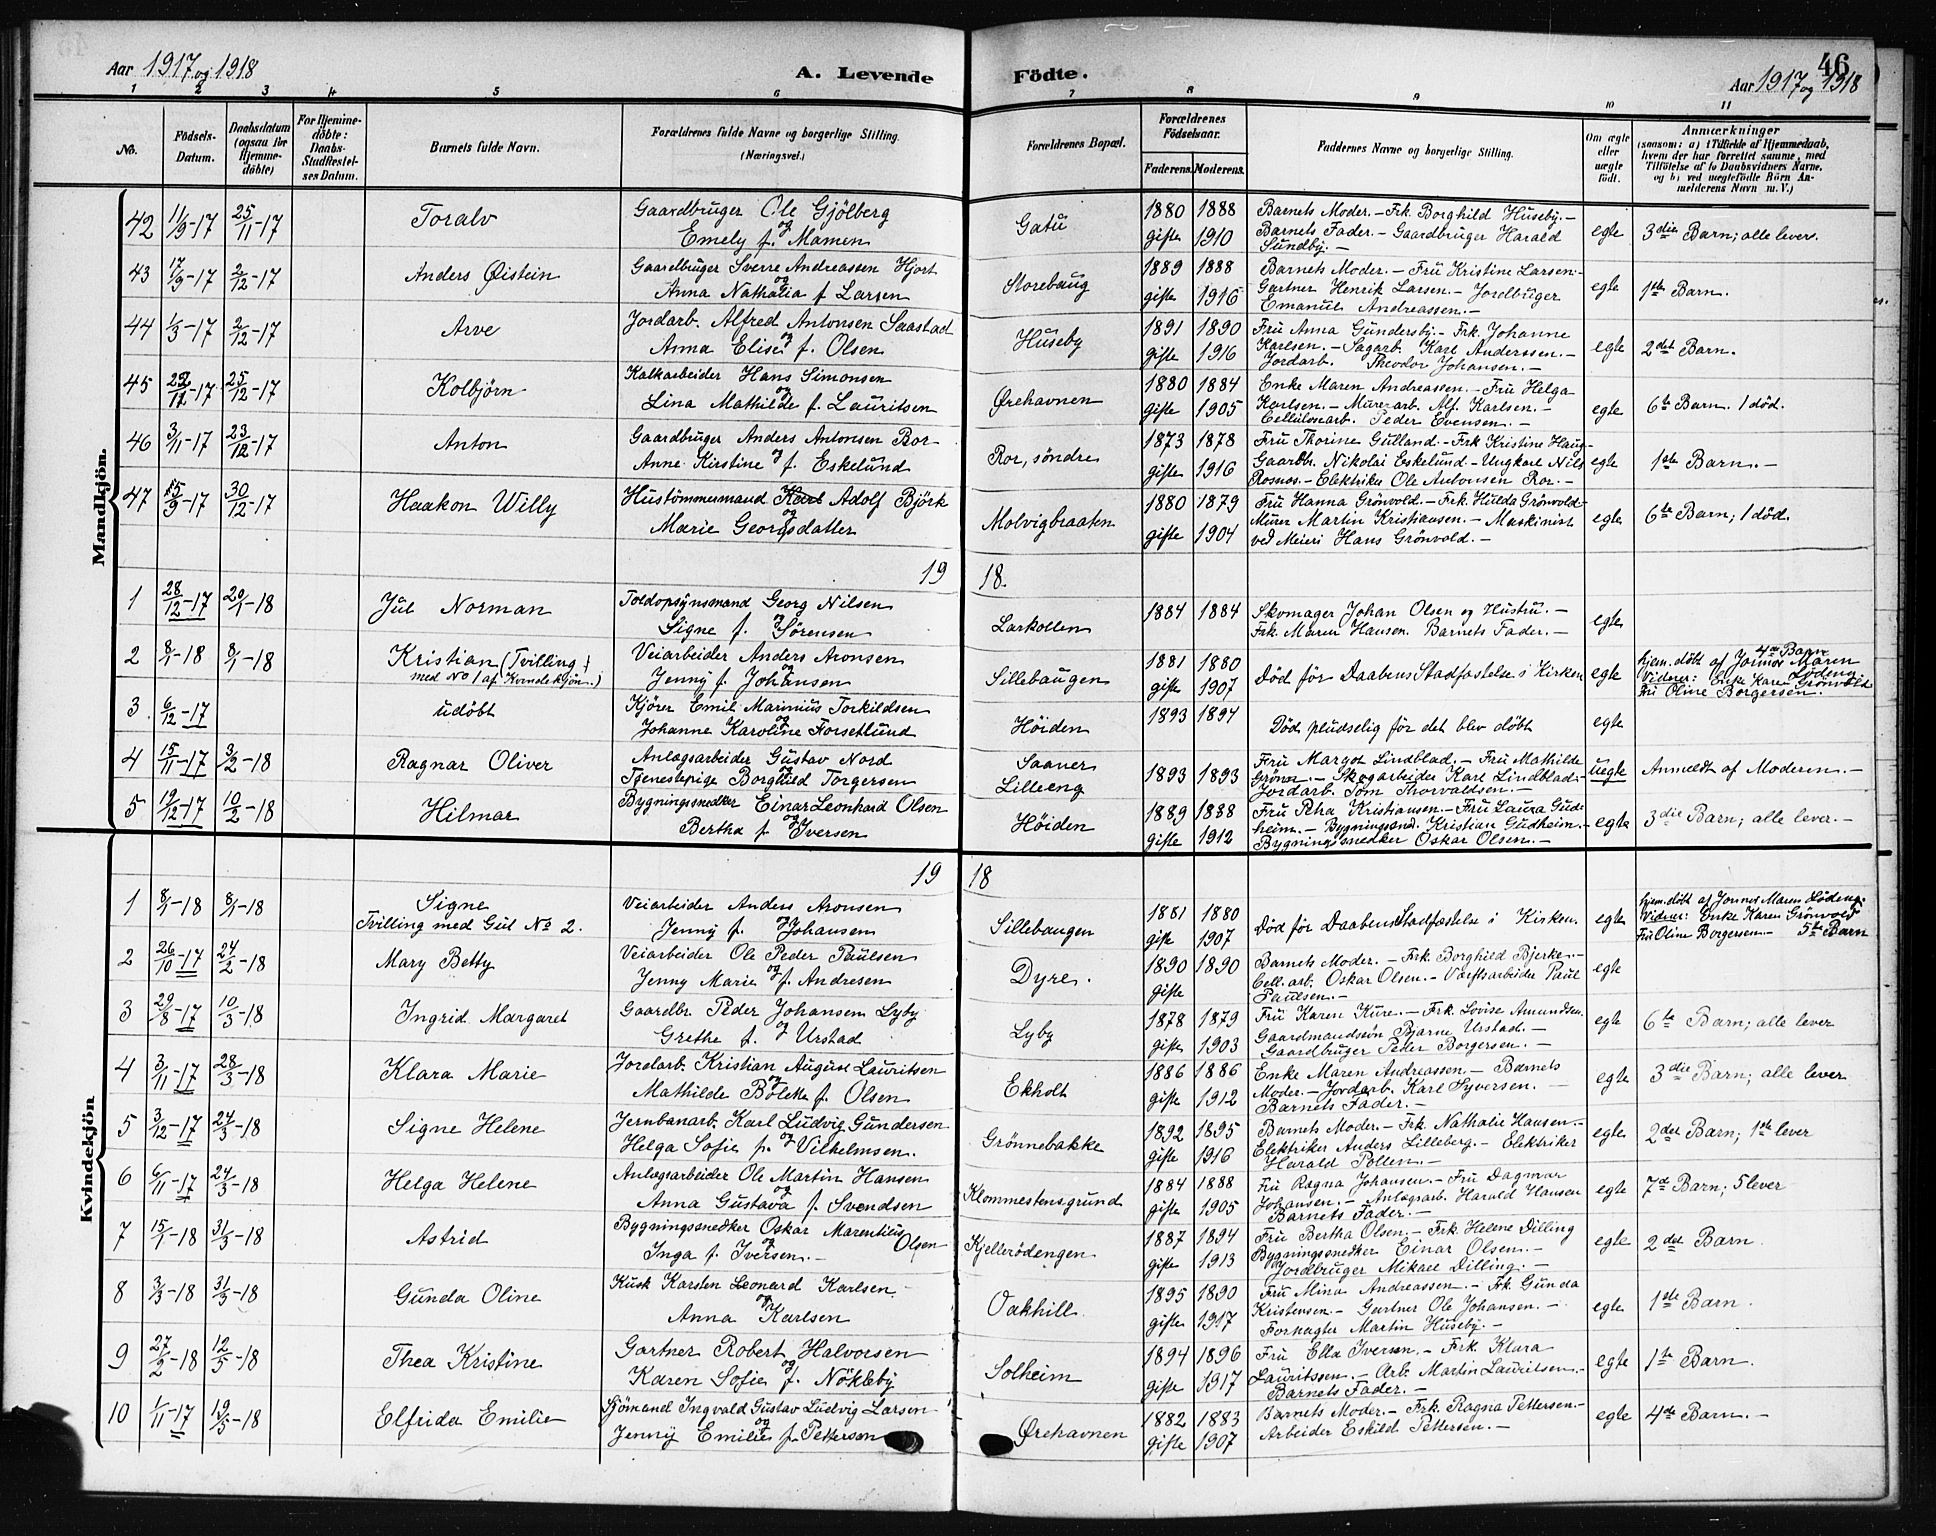 Aar 1917 og 1918
A. Levende Födte.
46
Aar 1917 og 1918
1 2 3 4 5 6 7 8 9 10 11
No.
Födsels-Datum.
Daabsdatum (ogsaa for Hjemme-döbte)
For Hjemme-döbte: Daabs-Stadfæstel-ses Datum.
Barnets fulde Navn.
Forældrenes fulde Navne og borgerlige Stilling. (Næringsvei.)
Forældrenes Bopæl.
Forældrenes Födselsaar.
Faderens. Moderens.
Faddernes Navne og borgerlige Stilling.
Om ægte eller uægte födt.
Anmærkninger
(saasom: a) i Tilfælde af Hjemmedaab, hvem der har forrettet samme, med Tilföielse af to Daabsvidners Navne, og b) ved uægtefödte Börn An-melderens Navn m. V.)
Mandkjön.
42 11/9-17 25/11-17 Toralv Gaardbruger Ole Gjölberg og Emely f. Mamen Gatu 1880 1888 gifte 1910 Barnets Moder.- Frk. Borghild Huseby.- Barnets Fader.- Gaardbruger Harald Sundby.- egte 3die Barn; alle lever.
43 17/9-17 2/12-17 Anders Øistein Gaardbruger Sverre Andreassen Hjort og Anna Nathalia f. Larsen Storebaug 1889 1888 gifte 1916 Barnets Moder.- Fru Kristine Larsen.- Gartner Henrik Larsen.- Jordbruger Emanuel Andreassen.- egte 1ste Barn.
44 1/3-17 2/12-17 Arve Jordarb. Alfred Antonsen Saastad og Anna Elise f. Olsen Huseby 1891 1890 gifte 1916 Fru Anna Gundersby.- Frk. Johanne Karlsen.- Sagarb. Karl Anderssen.- Jordarb. Theodor Johansen.- egte 2det Barn.
45 25/12-17 Kolbjörn Kalkarbeider Hans Simonsen og Lina Mathilde f. Lauritsen Ørehavnen 1880 1884 gifte 1905 Enke Maren Andreassen.- Fru Helga Karlsen.- Murerarb. Alf. Karlsen.- Cellulosearb. Peder Evensen.- egte 6te Barn. 1 död.
46 3/11-17 23/12-17 Anton Gaardbruger Anders Antonsen Ror- og Anne Kirstine f. Eskelund Ror, söndre 1873 1878 gifte 1916 Fru Thorine Gulland.- Frk Kristine Haug- Gaardbr. Nikolai Eskelund- Ungkarl Nils Rosnes.- Elektriker Ole Antonsen Ror.- egte 1ste Barn.-
47 15/9-17 30/12-17 Haakon Willy Hustömmermand Karl Adolf Björk og Marie Georgsdatter Molvigbraaten 1880 1879 gifte 1904 Fru Hanna Grönvold.- Frk. Hulda Grönvold- Murer Martin Kristiansen.- Maskinist ved Meieri Hans Grönvold.- egte 6te Barn; 1 död.
19 18.
1 28/12-17 20/1-18 Jul Norman Toldopsynsmand Georg Nilsen og Signe f. Sørensen Larkollen 1884 1884 Skomager Johan Olsen og Hustru.- Frk. Maren Hansen. Barnets Fader.- egte
2 8/1-18 8/1-18 Kristian (Tvilling med No 1 af Kvindekjön.) Veiarbeider Anders Aronsen og Jenny f. Johansen Sillebaugen 1881 1880 gifte 1907 Död för Daabens Stadfæstelse i Kirken egte 4de Barn hjem.döbt af Jormor Maren Löding Vidner: Enke Karen Grönvold Fru Oline Borgersen.
3 6/12-17 udöbt Kjörer Emil Marinius Torkildsen og Johanne Karoline Forsetlund Höiden 1893 1894 Död pludselig för det blev döbt egte
4 15/11-17 3/2-18 Ragnar Oliver Anlagsarbeider Gustav Nord og Tjenestepige Borghild Torgersen Saaner Lilleeng 1893 1893 Fru Margot Lindblad.- Fru Mathilde Grönn.- Skogarbeider Karl Lindblad.- Jordarb. Tom Thorvaldsen.- uegte Anmeldt af Moderen.-
5 19/12-17 10/2-18 Hilmar Bygningssnedker Einar Leonhard Olsen og Bertha f. Iversen Höiden 1889 1888 gifte 1912 Fru Petra Kristiansen.- Fru Laura Gud-heim.- Bygningssned. Kristian Gudheim.- Bygningssnedker Oskar Olsen.- egte 3die Barn; alle lever.-
Kvindekjön
19 18
1 8/1-18 8/1-18 Signe Tvilling med Gut No 2. Veiarbeider Anders Aronsen og Jenny f. Johansen Sillebaugen 1881 1880 gifte 1907 Död för Daabens Stadfæstelse i Kirken. egte hjem.döbt af Jormor Maren Löding. Vidner: Enke Karen Grönvold Fru Oline Borgersen.- 5te Barn
2 26/10-17 24/2-18 Mary Betty Veiarbeider Ole Peder Paulsen og Jenny Marie f. Andresen Dyre. 1890 1890 gifte Barnets Moder.- Frk. Borghild Bjerke.- Cell.arb. Oskar Olsen.- Værftsarbeider Paul Paulsen.- egte
3 29/8-17 10/3-18 Ingrid Margaret Gaardbr. Peder Johansen Lyby og Grethe f. Urstad Lyby 1878 1879 gifte 1903 Fru Karen Kure.- Frk. Lovise Amundsen. Gaardmandssön Bjarne Urstad.- Gaardbruger Peder Borgersen.- egte 6te Barn; alle lever
4 3/11-17 28/3-18 Klara Marie Jordarb. Kristian August Lauritsen og Mathilde Bolette f. Olsen Ekholt 1886 1886 gifte 1912 Enke Maren Andreassen.- Barnets Moder.- Jordarb. Karl Syversen.- Barnets Fader.- egte 3die Barn; alle lever
5 3/12-17 24/3-18 Signe Helene Jernbanarb. Karl Ludvig Gundersen og Helga Sofie f. Vilhelmsen. Grönnebakke 1892 1895 gifte 1916 Barnets Moder.- Frk. Nathalie Hansen.- Elektriker Anders Lilleberg.- Elektriker Harald Pollen.- egte 2det Barn; 1ste lever
6 6/11-17 24/3-18 Helga Helene Anlagsarbeider Ole Martin Hansen og Anna Gustava f. Svendsen Klommestensgrund 1884 1888 gifte 1905 Fru Ragna Johansen.- Fru Dagmar Johansen.- Anlagsarb. Harald Hansen Barnets Fader.- egte 7de Barn; 5 lever
7 15/1-18 31/3-18 Astrid Bygningssnedker Oskar Marentius Olsen og Inga f. Iversen.- Kjellerödengen 1887 1894 gifte 1913 Fru Bertha Olsen.- Frk. Helene Dilling Bygningssnedker Einar Olsen.- Jordbruger Mikael Dilling.- egte 2det Barn.
8 3/3-18 31/3-18 Gunda Oline Kusk Karsten Leonard Karlsen og Anna Karlsen Oakhill. 1895 1890 gifte 1917 Fru Mina Andreassen.- Frk. Gunda Kristensen.- Gartner Ole Johansen.- Forpagter Martin Huseby.- egte 1ste Barn.
9 27/2-18 12/5-18 Thea Kristine Gartner Robert Halvorsen og Karen Sofie f. Nökleby Solheim 1894 1896 gifte 1917 Fru Ella Iversen.- Frk. Klara Lauritssen.- Arb. Martin Lauritsen.- Barnets Fader.- egte 1ste Barn.
10 1/11-17 19/5-18 Elfrida Emilie Sjömand Ingvald Gustav Ludvig Larsen og Jenny Emilie f. Pettersen Ørehavnen 1882 1883 gifte 1907 Barnets Moder.- Frk. Ragna Pettersen.- Arbeider Eskild Pettersen.- egte 4de Barn.-